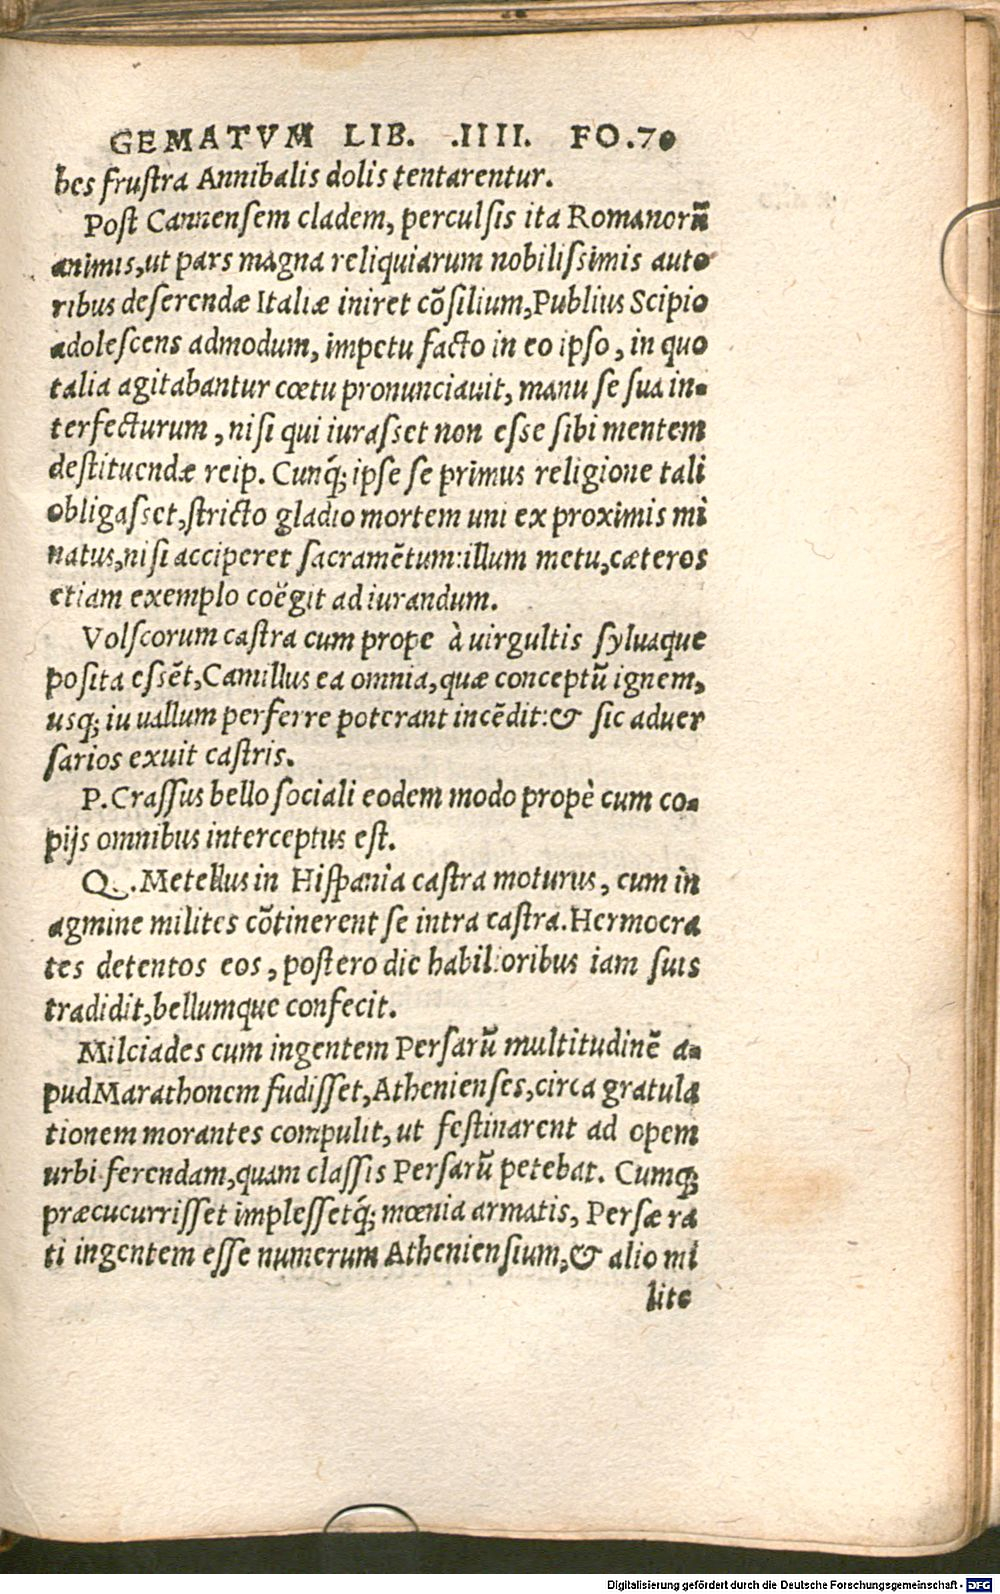 GEMATVM LIB. .IIII. FO.70
bes frustra Annibalis dolis tentarentur.
Post Cannensem cladem, perculsis ita Romanorũ
animis,ut pars magna reliquiarum nobilissimis auto
ribus deserendæ Italiæ iniret cõsilium,Publius Scipio
adolescens admodum, impetu facto in eo ipso, in quo
talia agitabantur cœtu pronunciauit, manu se sua in-
terfecturum, nisi qui iurasset non esse sibi mentem
destituendæ reip. Cunq́; ipse se primus religione tali
obligasset,stricto gladio mortem uni ex proximis mi
natus,nisi acciperet sacramẽtum:illum metu,cæteros
etiam exemplo coëgit ad iurandum.
Volscorum castra cum prope à uirgultis syluaque
posita essẽt,Camillus ea omnia,quæ conceptũ ignem,
usq; iu uallum perferre poterant incẽdit:& sic aduer
sarios exuit castris.
P.Crassus bello sociali eodem modo propè cum co-
pijs omnibus interceptus est.
Q. .Metellus in Hispania castra moturus, cum in
agmine milites cõtinerent se intra castra.Hermocra
tes detentos eos, postero die habilioribus iam suis
tradidit,bellumque confecit.
Milciades cum ingentem Persarũ multitudinẽ a-
pud Marathonem fudisset,Athenienses,circa gratula
tionem morantes compulit,ut festinarent ad opem
urbi ferendam,quam classis Persarũ petebat. Cumq;
præcucurrisset implessetq́; mœnia armatis, Persæ ra
ti ingentem esse numerum Atheniensium,& alio mi
lite
Digitalisierung gefördert durch die Deutsche Forschungsgemeinschaft - DFG